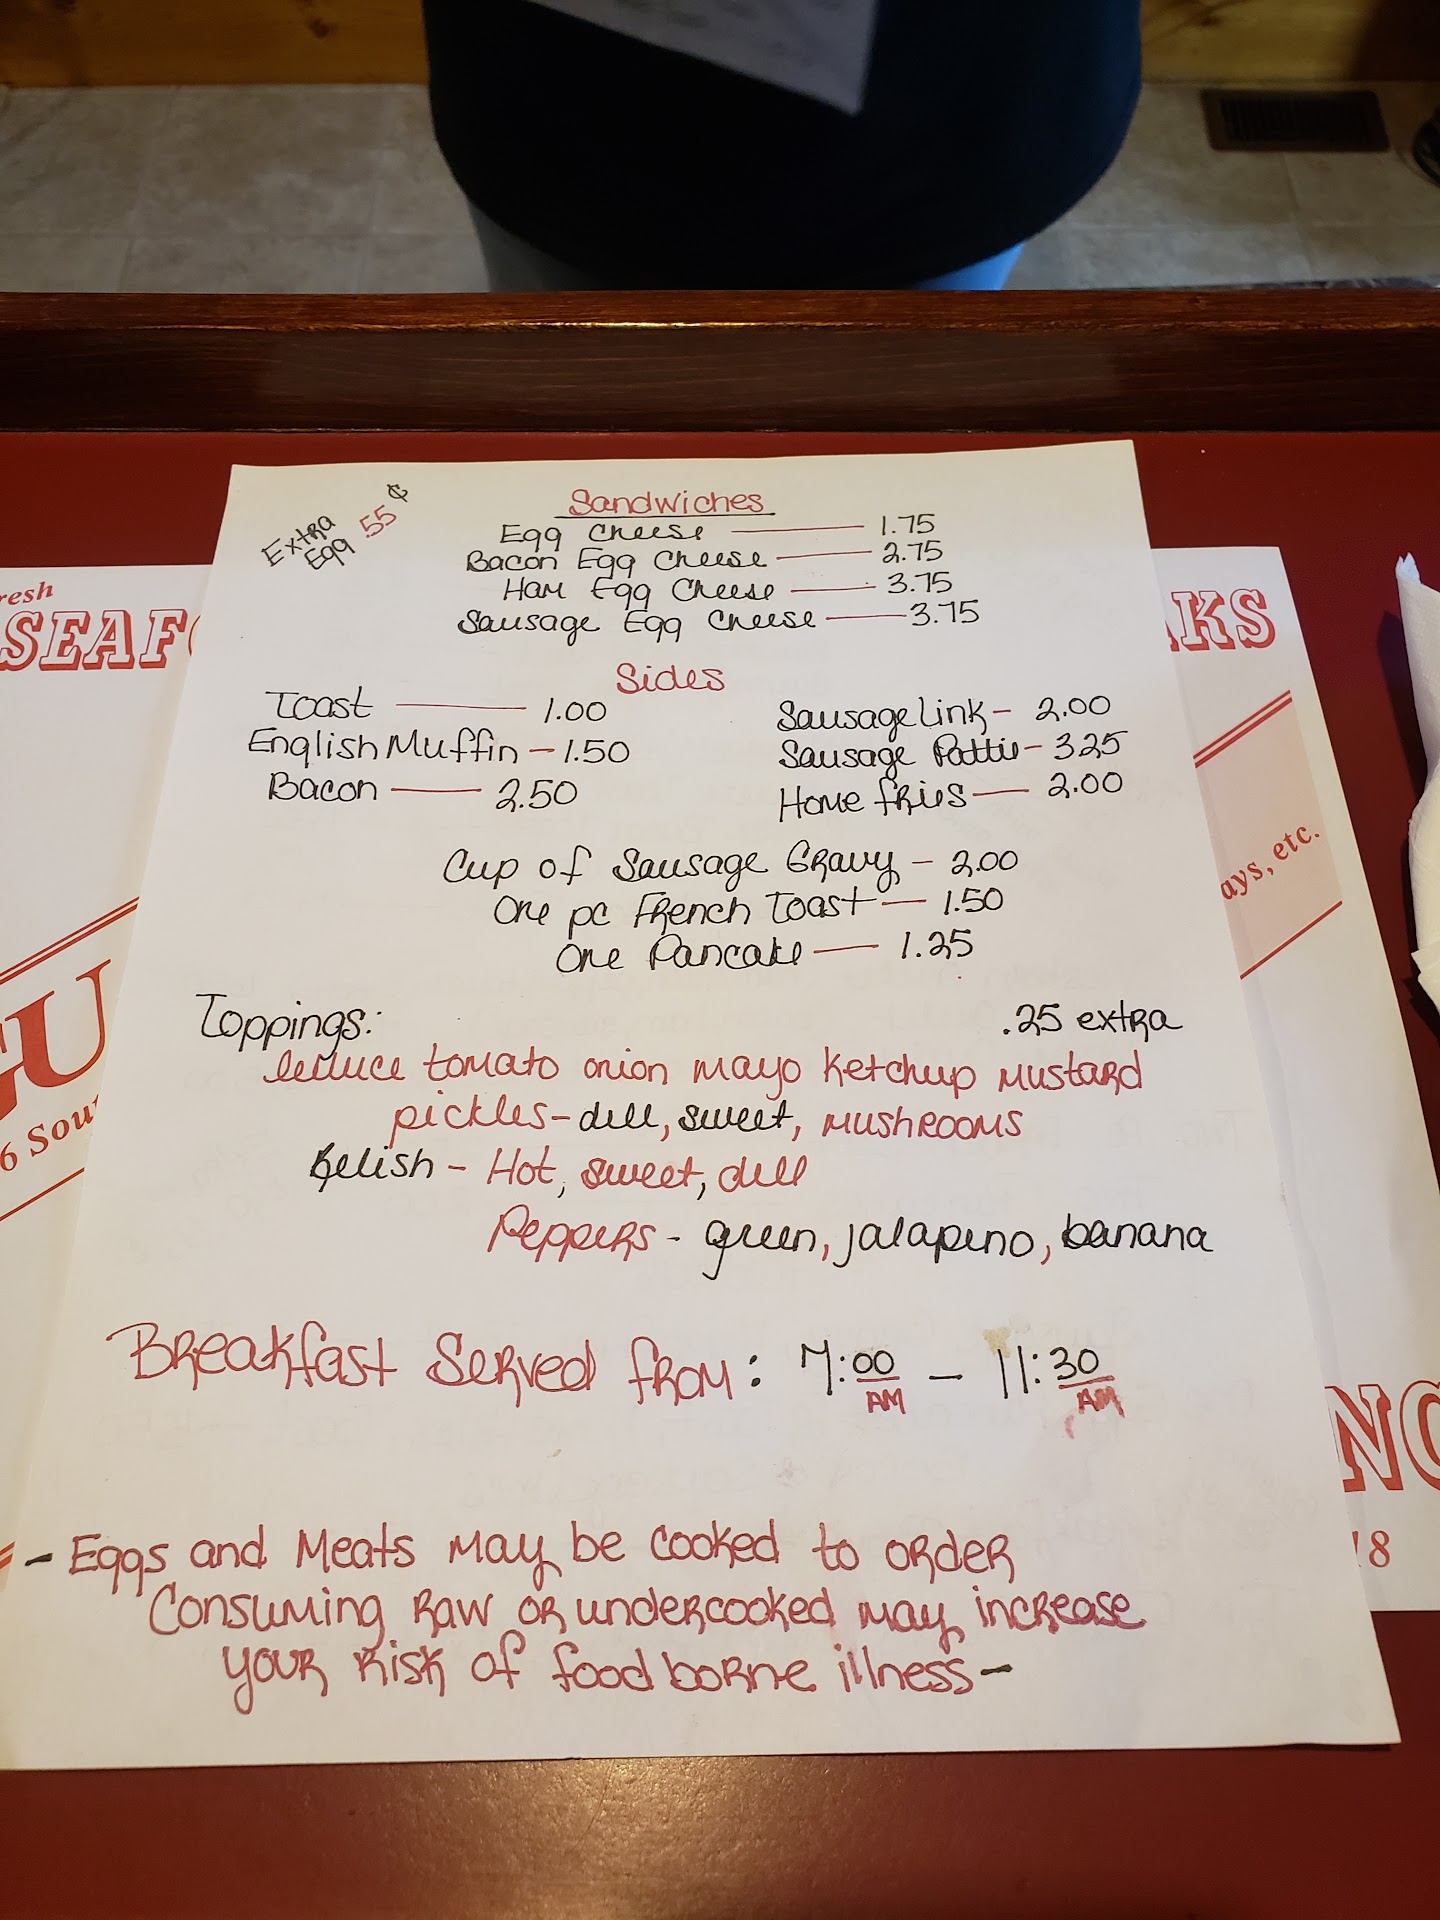 Extra
Egg .55¢
Sandwiches
Egg Cheese — 1.75
Bacon Egg Cheese — 2.75
Ham Egg Cheese — 3.75
Sausage Egg Cheese — 3.75
Sides
Toast — 1.00
English Muffin — 1.50
Bacon — 2.50
Sausage Link — 2.00
Sausage Pattie — 3.25
Home fries — 2.00
Cup of Sausage Gravy — 2.00
One pc French Toast — 1.50
One Pancake — 1.25
Toppings: .25 extra
lettuce tomato onion mayo ketchup mustard
pickles - dill, sweet, mushrooms
Relish - Hot, sweet, dill
Peppers - green, jalapeno, banana
Breakfast Served from: 7:00 AM — 11:30 AM
- Eggs and Meats may be cooked to order
Consuming raw or undercooked may increase
your risk of food borne illness -
resh
SEAF
AKS
ays, etc.
GU
6 Sou
NC
18